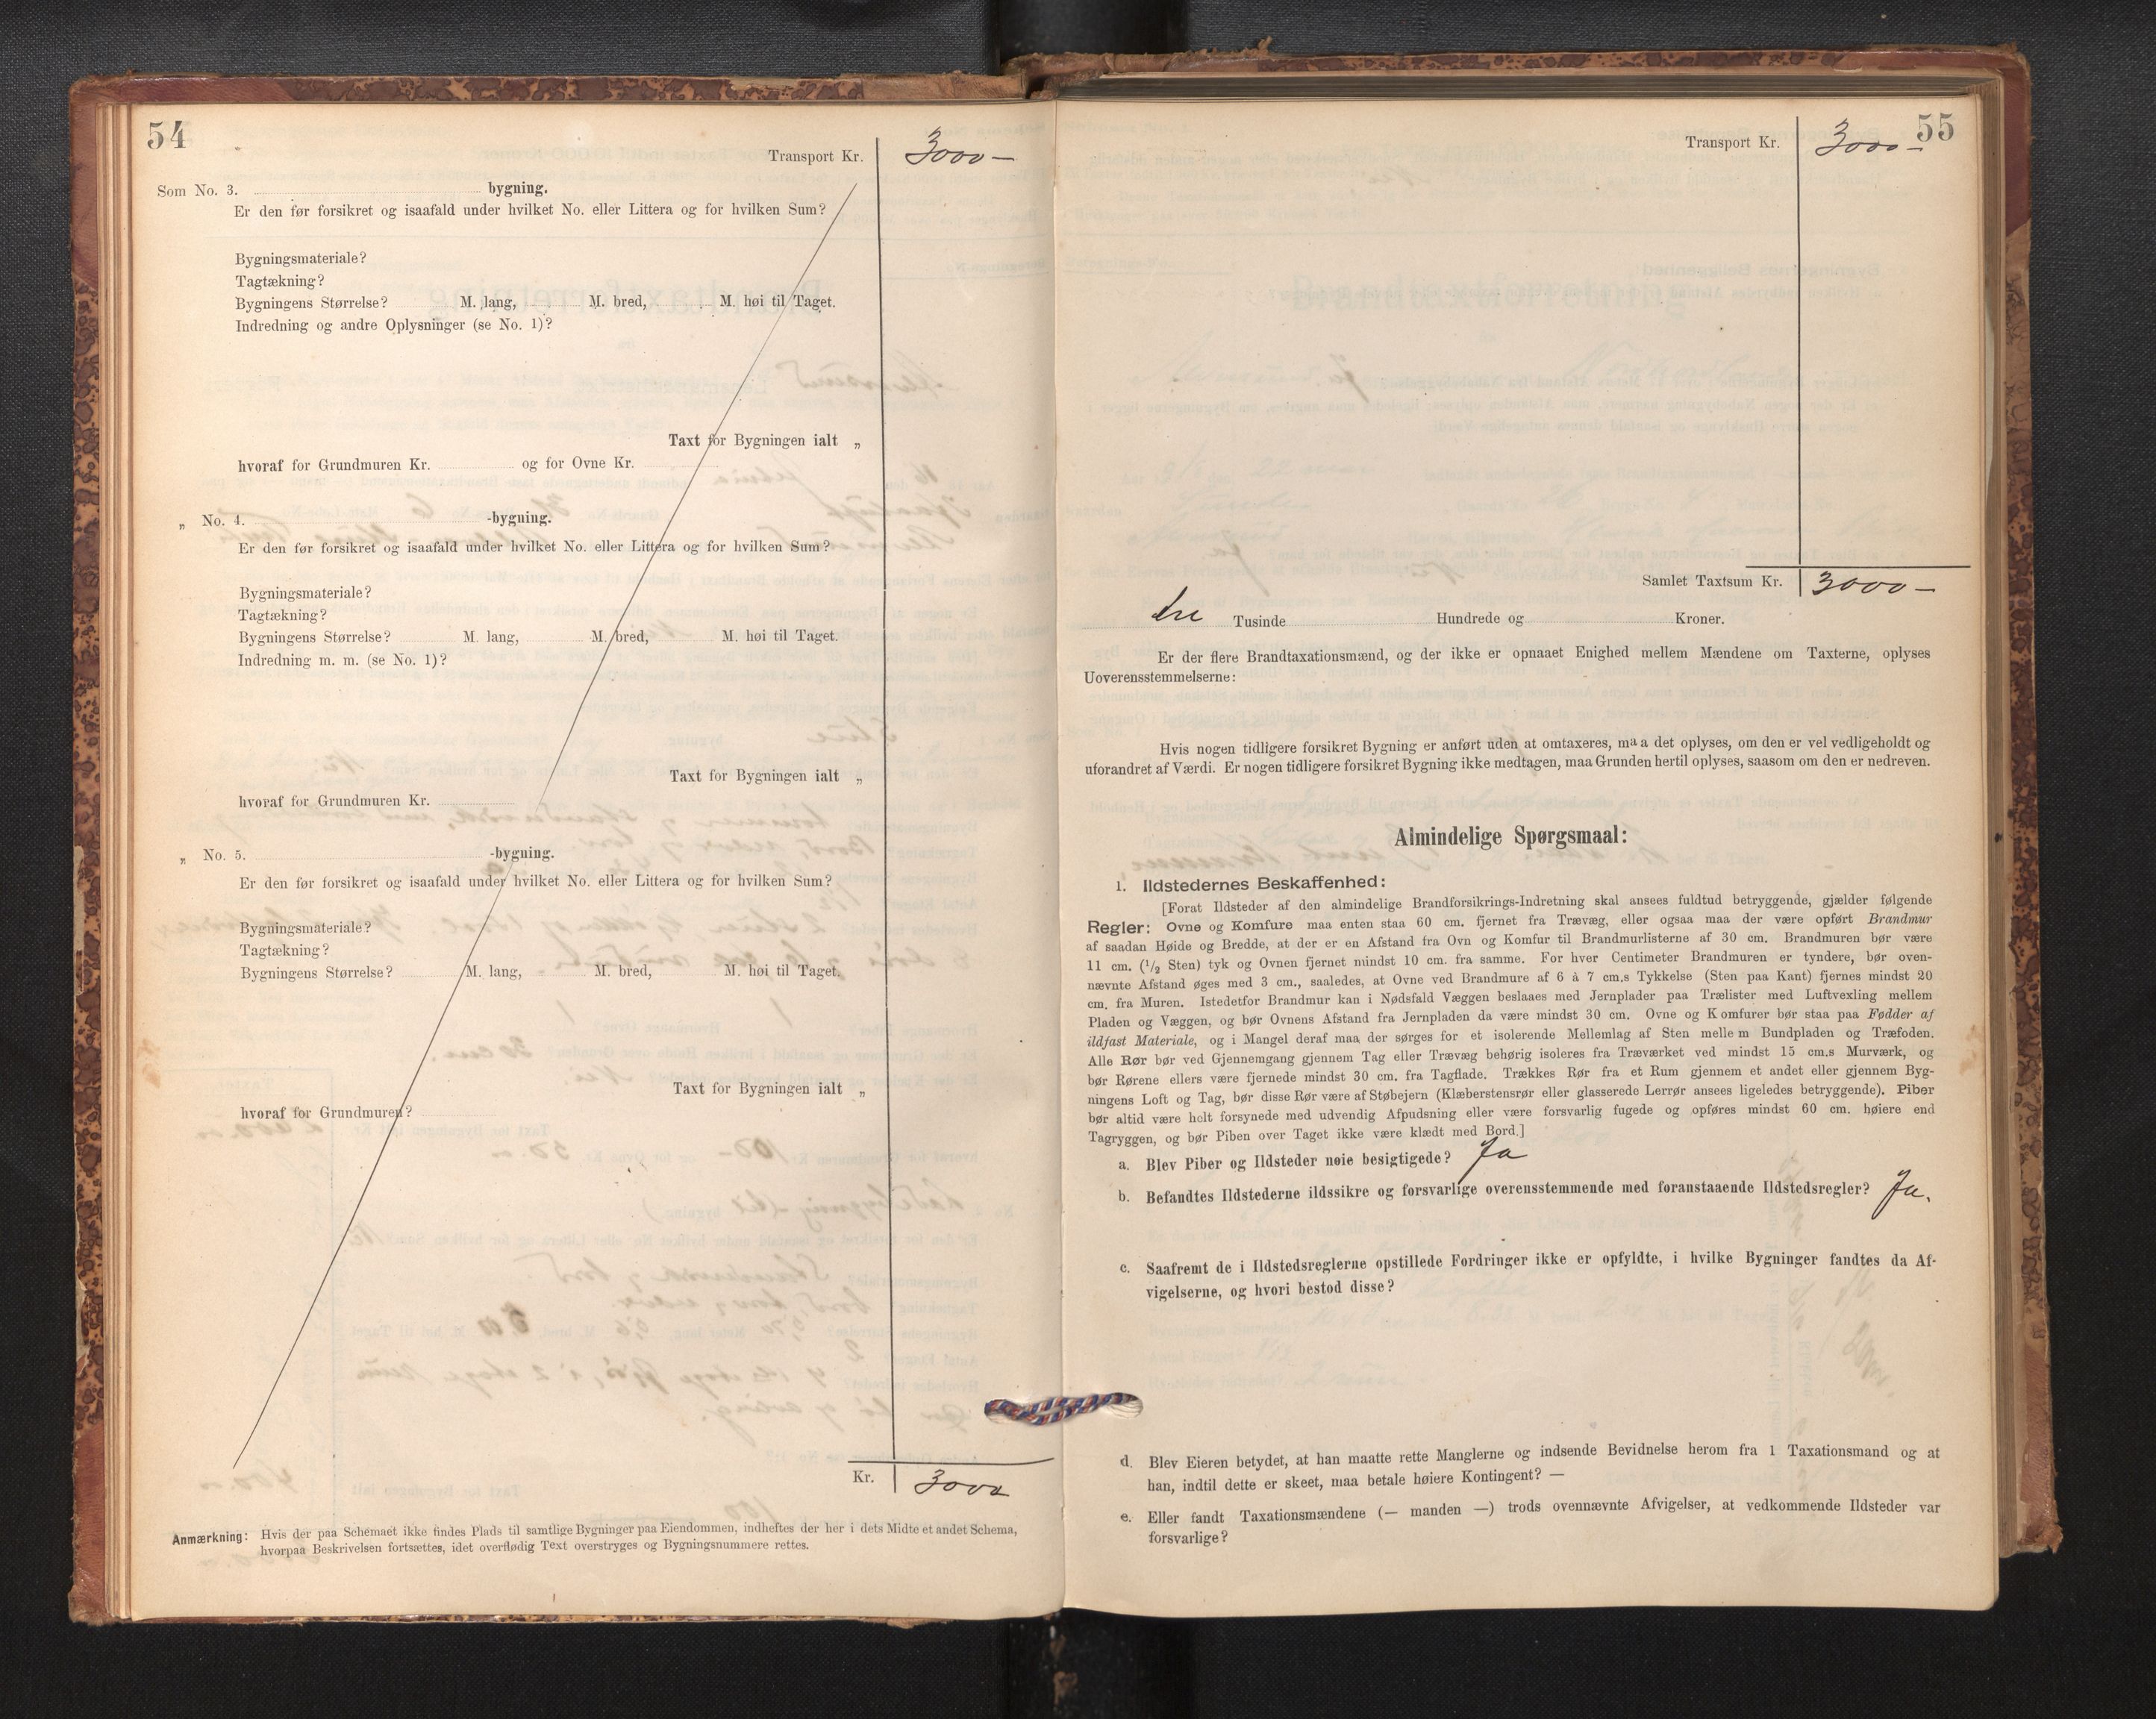 54
Transport Kr. 3000 —
Som No. 3. bygning.
Er den før forsikret og isaafald under hvilket No. eller Littera og for hvilken Sum?
Bygningsmateriale?
Tagtækning?
Bygningens Størrelse? M. lang, M. bred, M. høi til Taget.
Indredning og andre Oplysninger (se No. 1)?
Taxt for Bygningen ialt „
hvoraf for Grundmuren Kr. og for Ovne Kr.
„ No. 4. -bygning.
Er den før forsikret og isaafald under hvilket No. eller Littera og for hvilken Sum?
Bygningsmateriale?
Tagtækning?
Bygningens Størrelse? M. lang, M. bred, M. høi til Taget.
Indredning m. m. (se No. 1)?
Taxt for Bygningen ialt „
hvoraf for Grundmuren Kr.
„ No. 5. -bygning.
Er den før forsikret og isaafald under hvilket No. eller Littera og for hvilken Sum?
Bygningsmateriale?
Tagtækning?
Bygningens Størrelse? M. lang, M. bred, M. høi til Taget.
Taxt for Bygningen ialt „
hvoraf for Grundmuren?
Kr. 3000
Anmærkning: Hvis der paa Schemaet ikke findes Plads til samtlige Bygninger paa Eiendommen, indheftes der her i dets Midte et andet Schema,
hvorpaa Beskrivelsen fortsættes, idet overflødig Text overstryges og Bygningsnummere rettes.
55
Transport Kr. 3000 —
Samlet Taxtsum Kr. 3000 —
tre Tusinde Hundrede og Kroner.
Er der flere Brandtaxationsmænd, og der ikke er opnaaet Enighed mellem Mændene om Taxterne, oplyses
Uoverensstemmelserne:
Hvis nogen tidligere forsikret Bygning er anført uden at omtaxeres, maa det oplyses, om den er vel vedligeholdt og
uforandret af Værdi. Er nogen tidligere forsikret Bygning ikke medtagen, maa Grunden hertil oplyses, saasom om den er nedreven.
Almindelige Spørgsmaal:
1. Ildstedernes Beskaffenhed:
[Forat Ildsteder af den almindelige Brandforsikrings-Indretning skal ansees fuldtud betryggende, gjælder følgende
Regler: Ovne og Komfure maa enten staa 60 cm. fjernet fra Trævæg, eller ogsaa maa der være opført Brandmur
af saadan Høide og Bredde, at der er en Afstand fra Ovn og Komfur til Brandmurlisterne af 30 cm. Brandmuren bør være
11 cm. (1/2 Sten) tyk og Ovnen fjernet mindst 10 cm. fra samme. For hver Centimeter Brandmuren er tyndere, bør oven-
nævnte Afstand øges med 3 cm., saaledes, at Ovne ved Brandmure af 6 à 7 cm.s Tykkelse (Sten paa Kant) fjernes mindst 20
cm. fra Muren. Istedetfor Brandmur kan i Nødsfald Væggen beslaaes med Jernplader paa Trælister med Luftvexling mellem
Pladen og Væggen, og bør Ovnens Afstand fra Jernpladen da være mindst 30 cm. Ovne og Komfurer bør staa paa Fødder af
ildfast Materiale, og i Mangel deraf maa der sørges for et isolerende Mellemlag af Sten mellem Bundpladen og Træfoden.
Alle Rør bør ved Gjennemgang gjennem Tag eller Trævæg behørig isoleres fra Træværket ved mindst 15 cm.s Murværk, og
bør Rørene ellers være fjernede mindst 30 cm. fra Tagflade. Trækkes Rør fra et Rum gjennem et andet eller gjennem Byg-
ningens Loft og Tag, bør disse Rør være af Støbejern (Klæberstensrør eller glasserede Lerrør ansees ligeledes betryggende). Piber
bør altid være helt forsynede med udvendig Afpudsning eller være forsvarlig fugede og opføres mindst 60 cm. høiere end
Tagryggen, og bør Piben over Taget ikke være klædt med Bord.]
a. Blev Piber og Ildsteder nøie besigtigede? Ja
b. Befandtes Ildstederne ildssikre og forsvarlige overensstemmende med foranstaaende Ildstedsregler? Ja.
c. Saafremt de i Ildstedsreglerne opstillede Fordringer ikke er opfyldte, i hvilke Bygninger fandtes da Af-
vigelserne, og hvori bestod disse?
d. Blev Eieren betydet, at han maatte rette Manglerne og indsende Bevidnelse herom fra 1 Taxationsmand og at
han, indtil dette er skeet, maa betale høiere Kontingent? —
e. Eller fandt Taxationsmændene (— manden —) trods ovennævnte Afvigelser, at vedkommende Ildsteder var
forsvarlige?